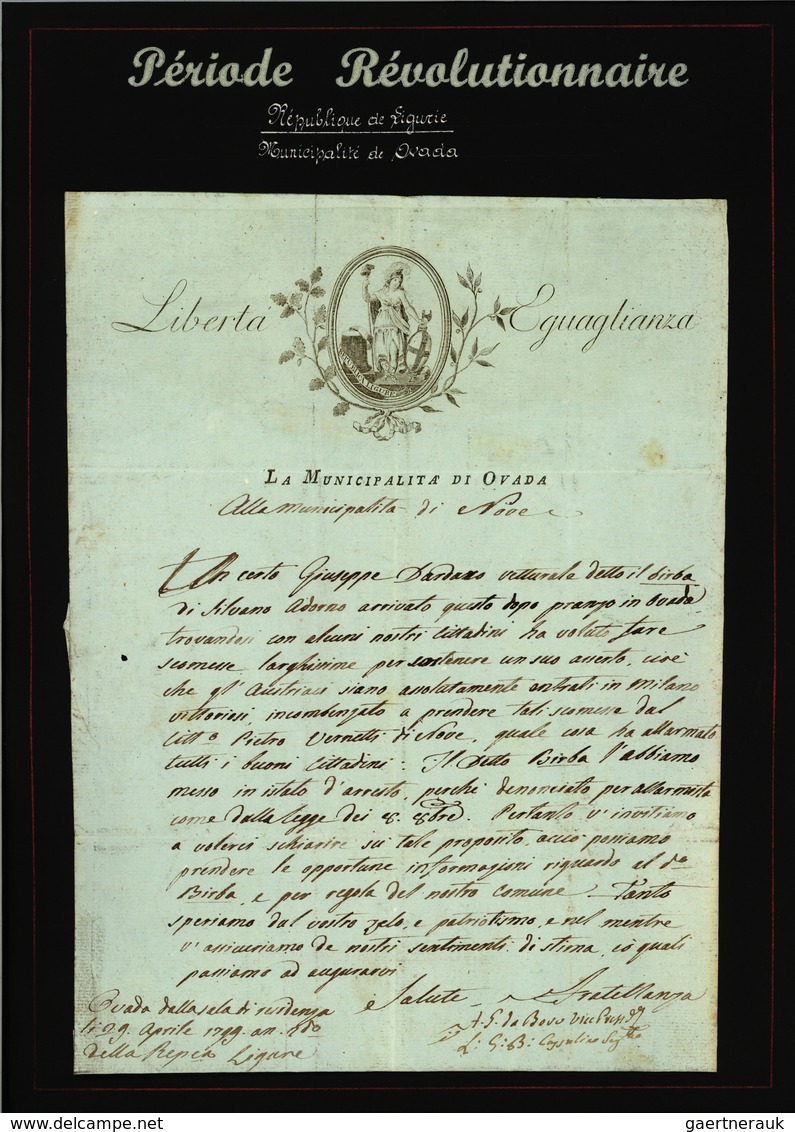 Période Révolutionnaire
République de Ligurie
Municipalité de Ovada
Libertà Eguaglianza
LA MUNICIPALITÀ DI OVADA
Alla Municipalità di Nove
Un certo Giuseppe Dardano vetturale detto il Birba
di Silvano Adorno arrivato questo dopo pranzo in Ovada
trovandosi con alcuni nostri Cittadini ha voluto fare
scomesse larghissime per sostenere un suo asserto, cioè
che gl' Austriaci siano assolutamente entrati in Milano
vittoriosi, incombenzato a prendere tali scomesse dal
Citt.o Pietro Vernetti di Nove, quale cosa ha allarmato
tutti i buoni Cittadini: Il detto Birba l'abbiamo
messo in istato d'arresto, perchè denonciato per allarmista
come dalla legge dei 8. 8bre. Pertanto v' invitiamo
a volerci schiarire su tale proposito, acciò possiamo
prendere le opportune informazioni riguardo al do
Birba, e per regola del nostro comune. Tanto
speriamo dal vostro zelo, e patriotismo, e nel mentre
v' assicuriamo de nostri sentimenti di stima, co quali
passiamo ad augurarvi
Salute e Fratellanza
Ovada dalla sala di residenza
li 29. Aprile 1799. an. 2do
della Repca Ligure
gaertnerauk / delcampe.net